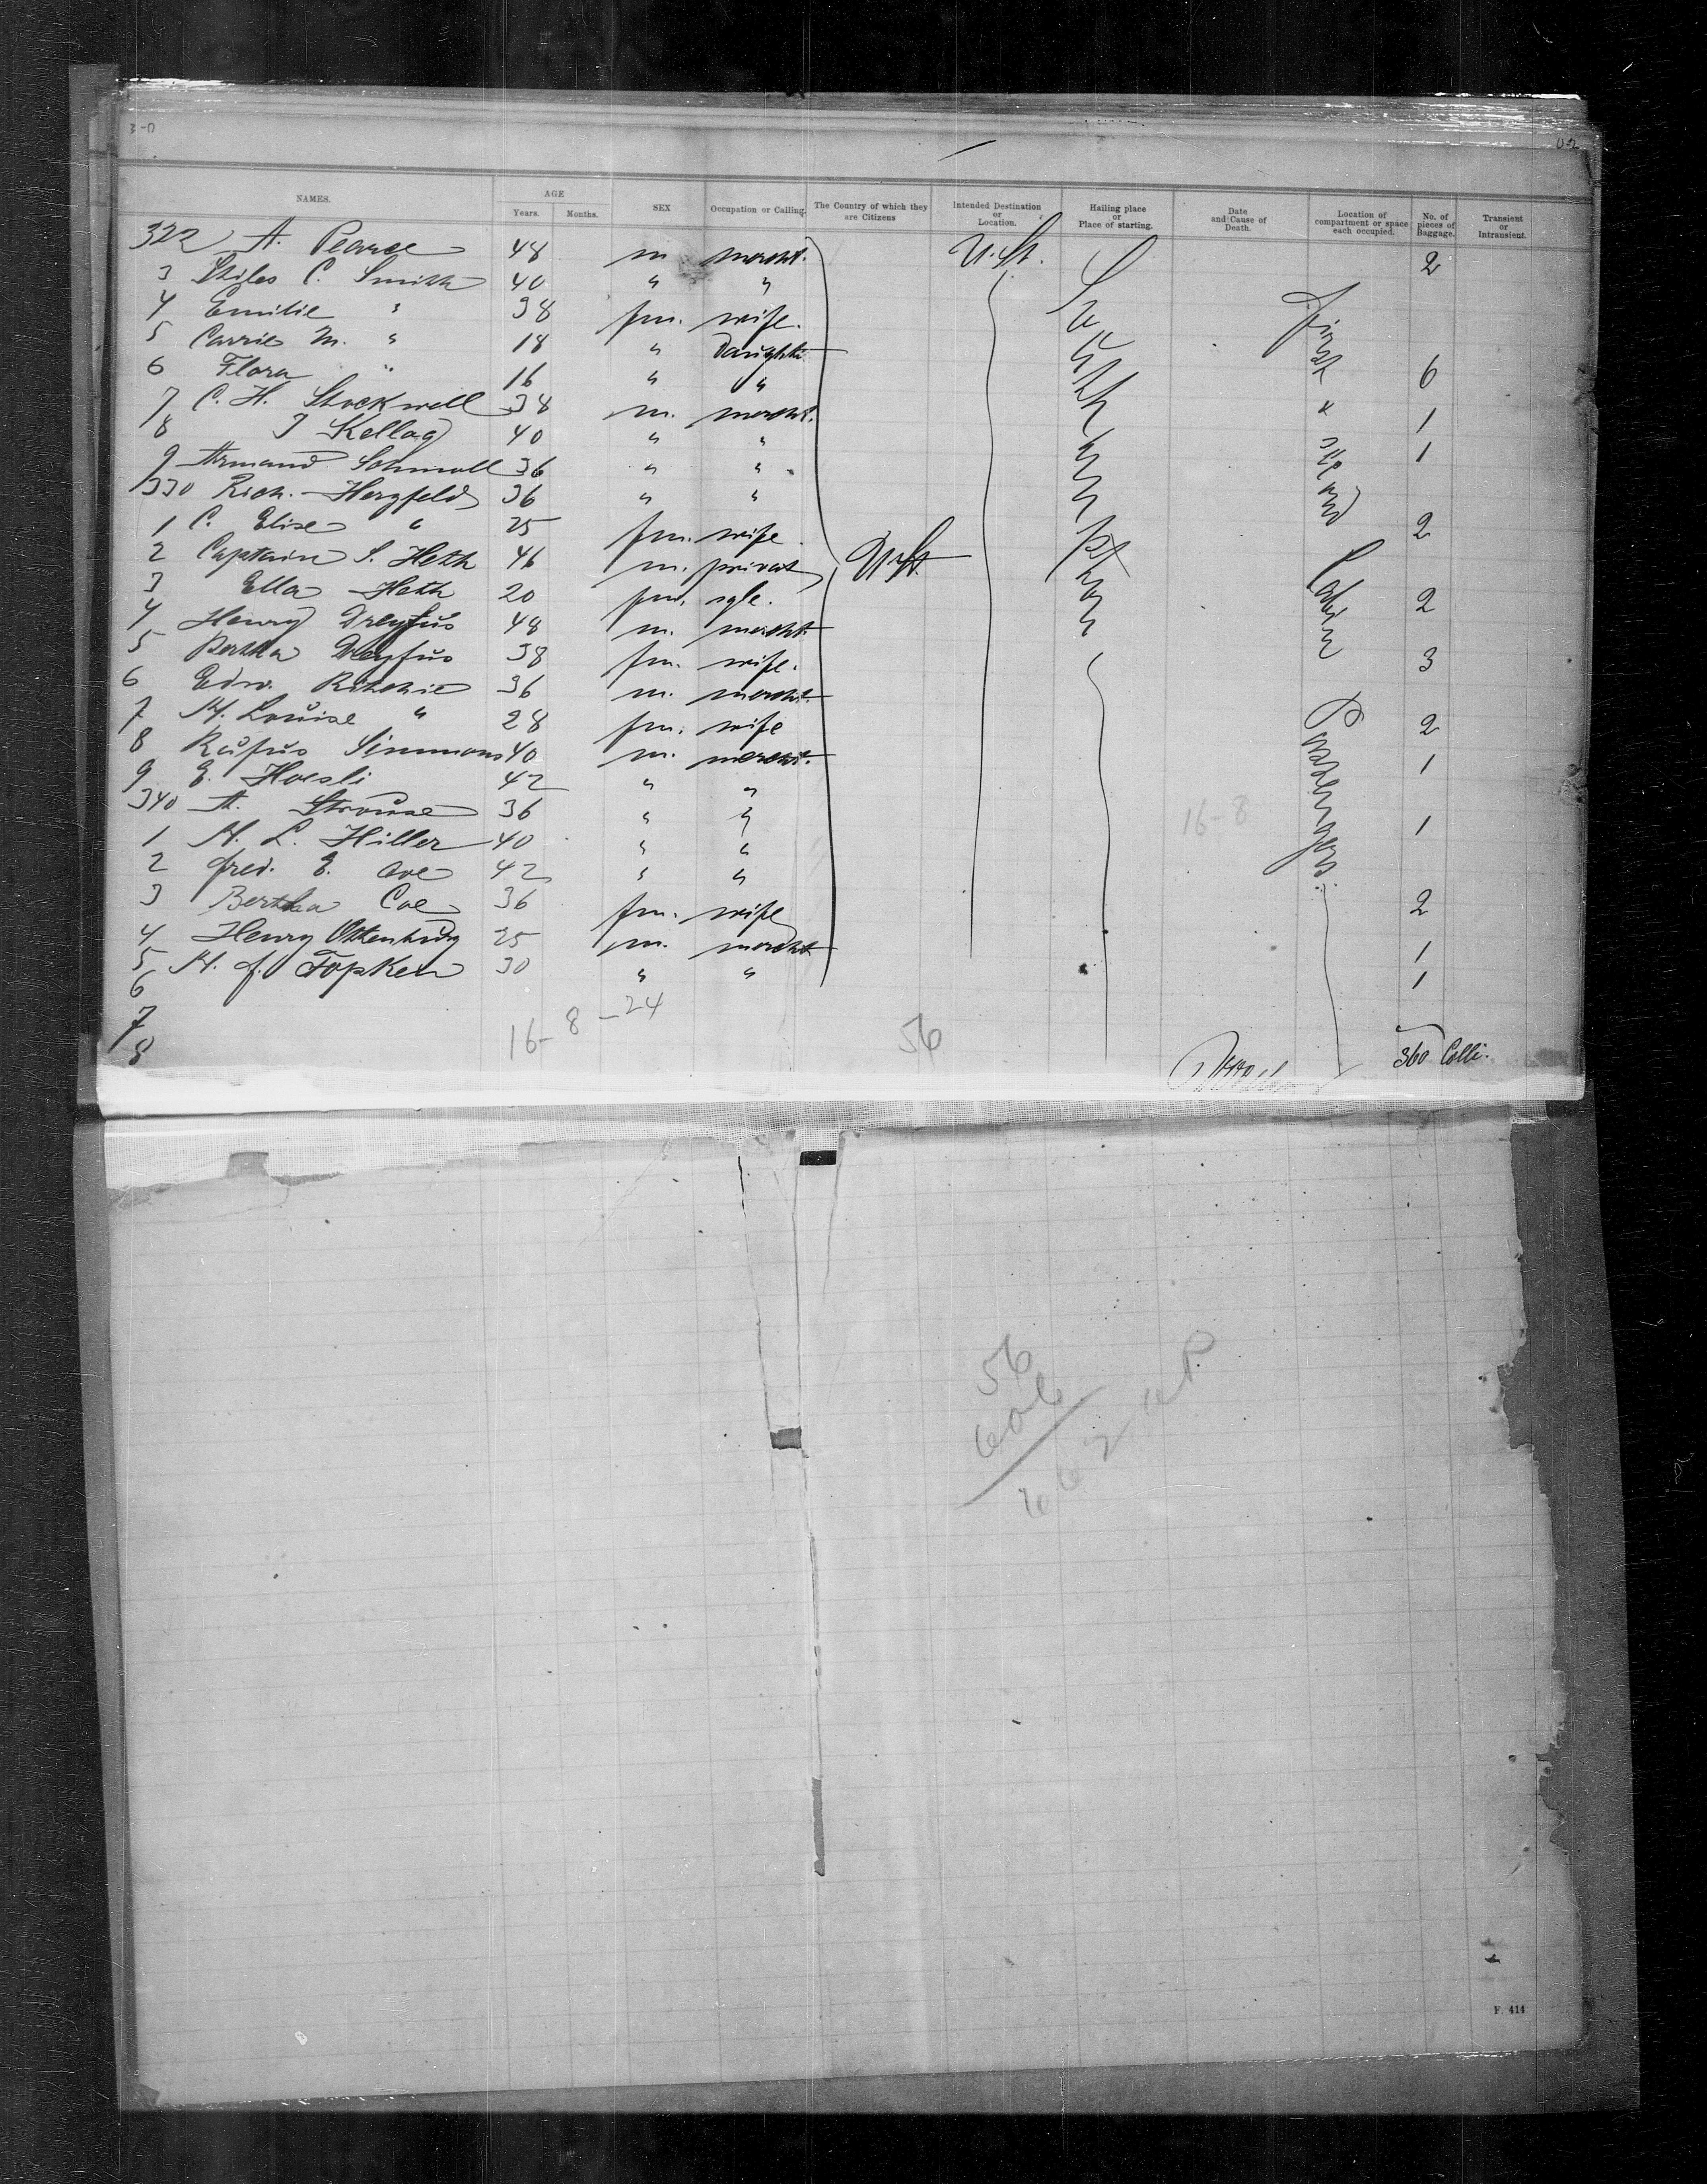 3-0 02
NAMES. AGE Years. Months. SEX Occupation or Calling. The Country of which they are Citizens Intended Destination or Location. Hailing place or Place of starting. Date and Cause of Death. Location of compartment or space each occupied. No. of pieces of Baggage. Transient or Intransient.
322 A. Pearce 48 m mercht. U.St. 2
3 Stiles C. Smith 40 " "
4 Emilie " 38 fm. wife.
5 Carrie M. " 18 " Daught.
6 Flora " 16 " " 6
7 C. H. Stockwell 38 m. mercht. 1
8 J Kellog 40 " " 1
9 Armand Schmoll 36 " "
330 Rich. Herzfeld 36 " "
1 C. Elise " 25 fm. wife 2
2 Captain S. Heth 46 m. privat U.St.
3 Ella Heth 20 fm. sgle. 2
4 Henry Dreyfus 48 m. mercht.
5 Bertha Dreyfus 38 fm. wife. 3
6 Edw. Ritchie 36 m. mercht.
7 M. Louise " 28 fm. wife 2
8 Rufus Simmons 40 m. mercht. 1
9 E. Hoesli 42 " "
340 A. Strouse 36 " " 1
1 H. L. Hiller 40 " "
2 fred. E. Coe 42 " "
3 Bertha Coe 36 fm. wife 2
4 Henry Ottenburg 25 m. mercht 1
5 H. f. Topken 30 " " 1
6
7
8
Southhampton
First & Second Cabin Passengers.
16-8
16-8-24
56
360 Colli.
56
606
662
F. 414